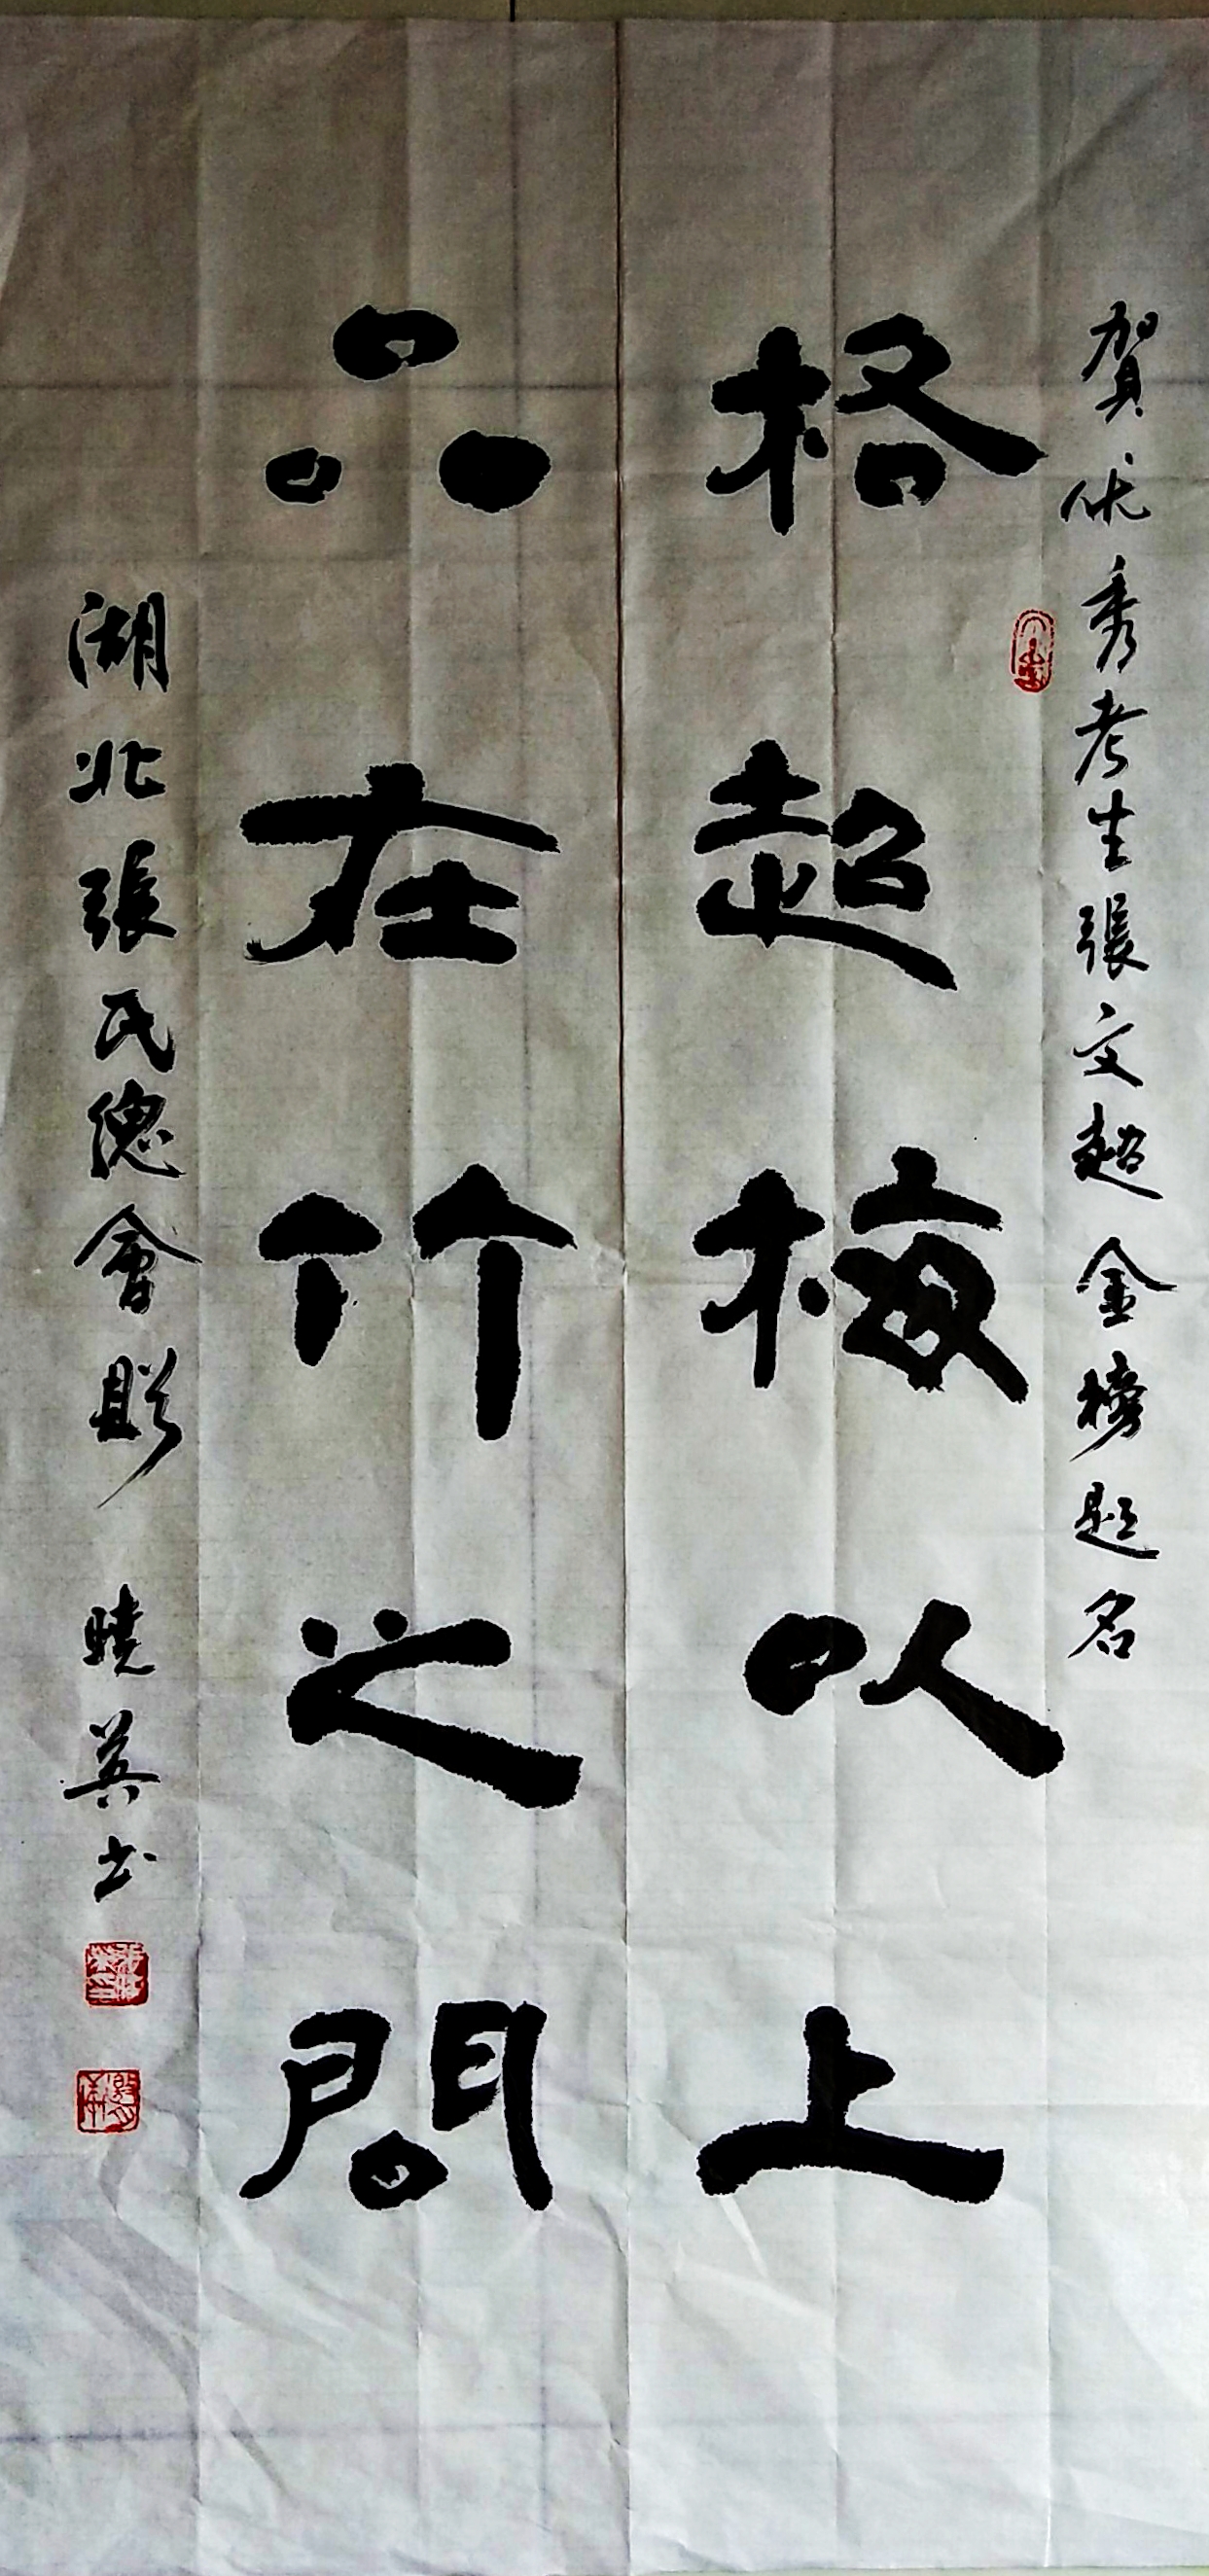 賀优秀考生張文超金榜題名
格超梅以上
品在竹之間
湖北張氏總會贈 曉英书